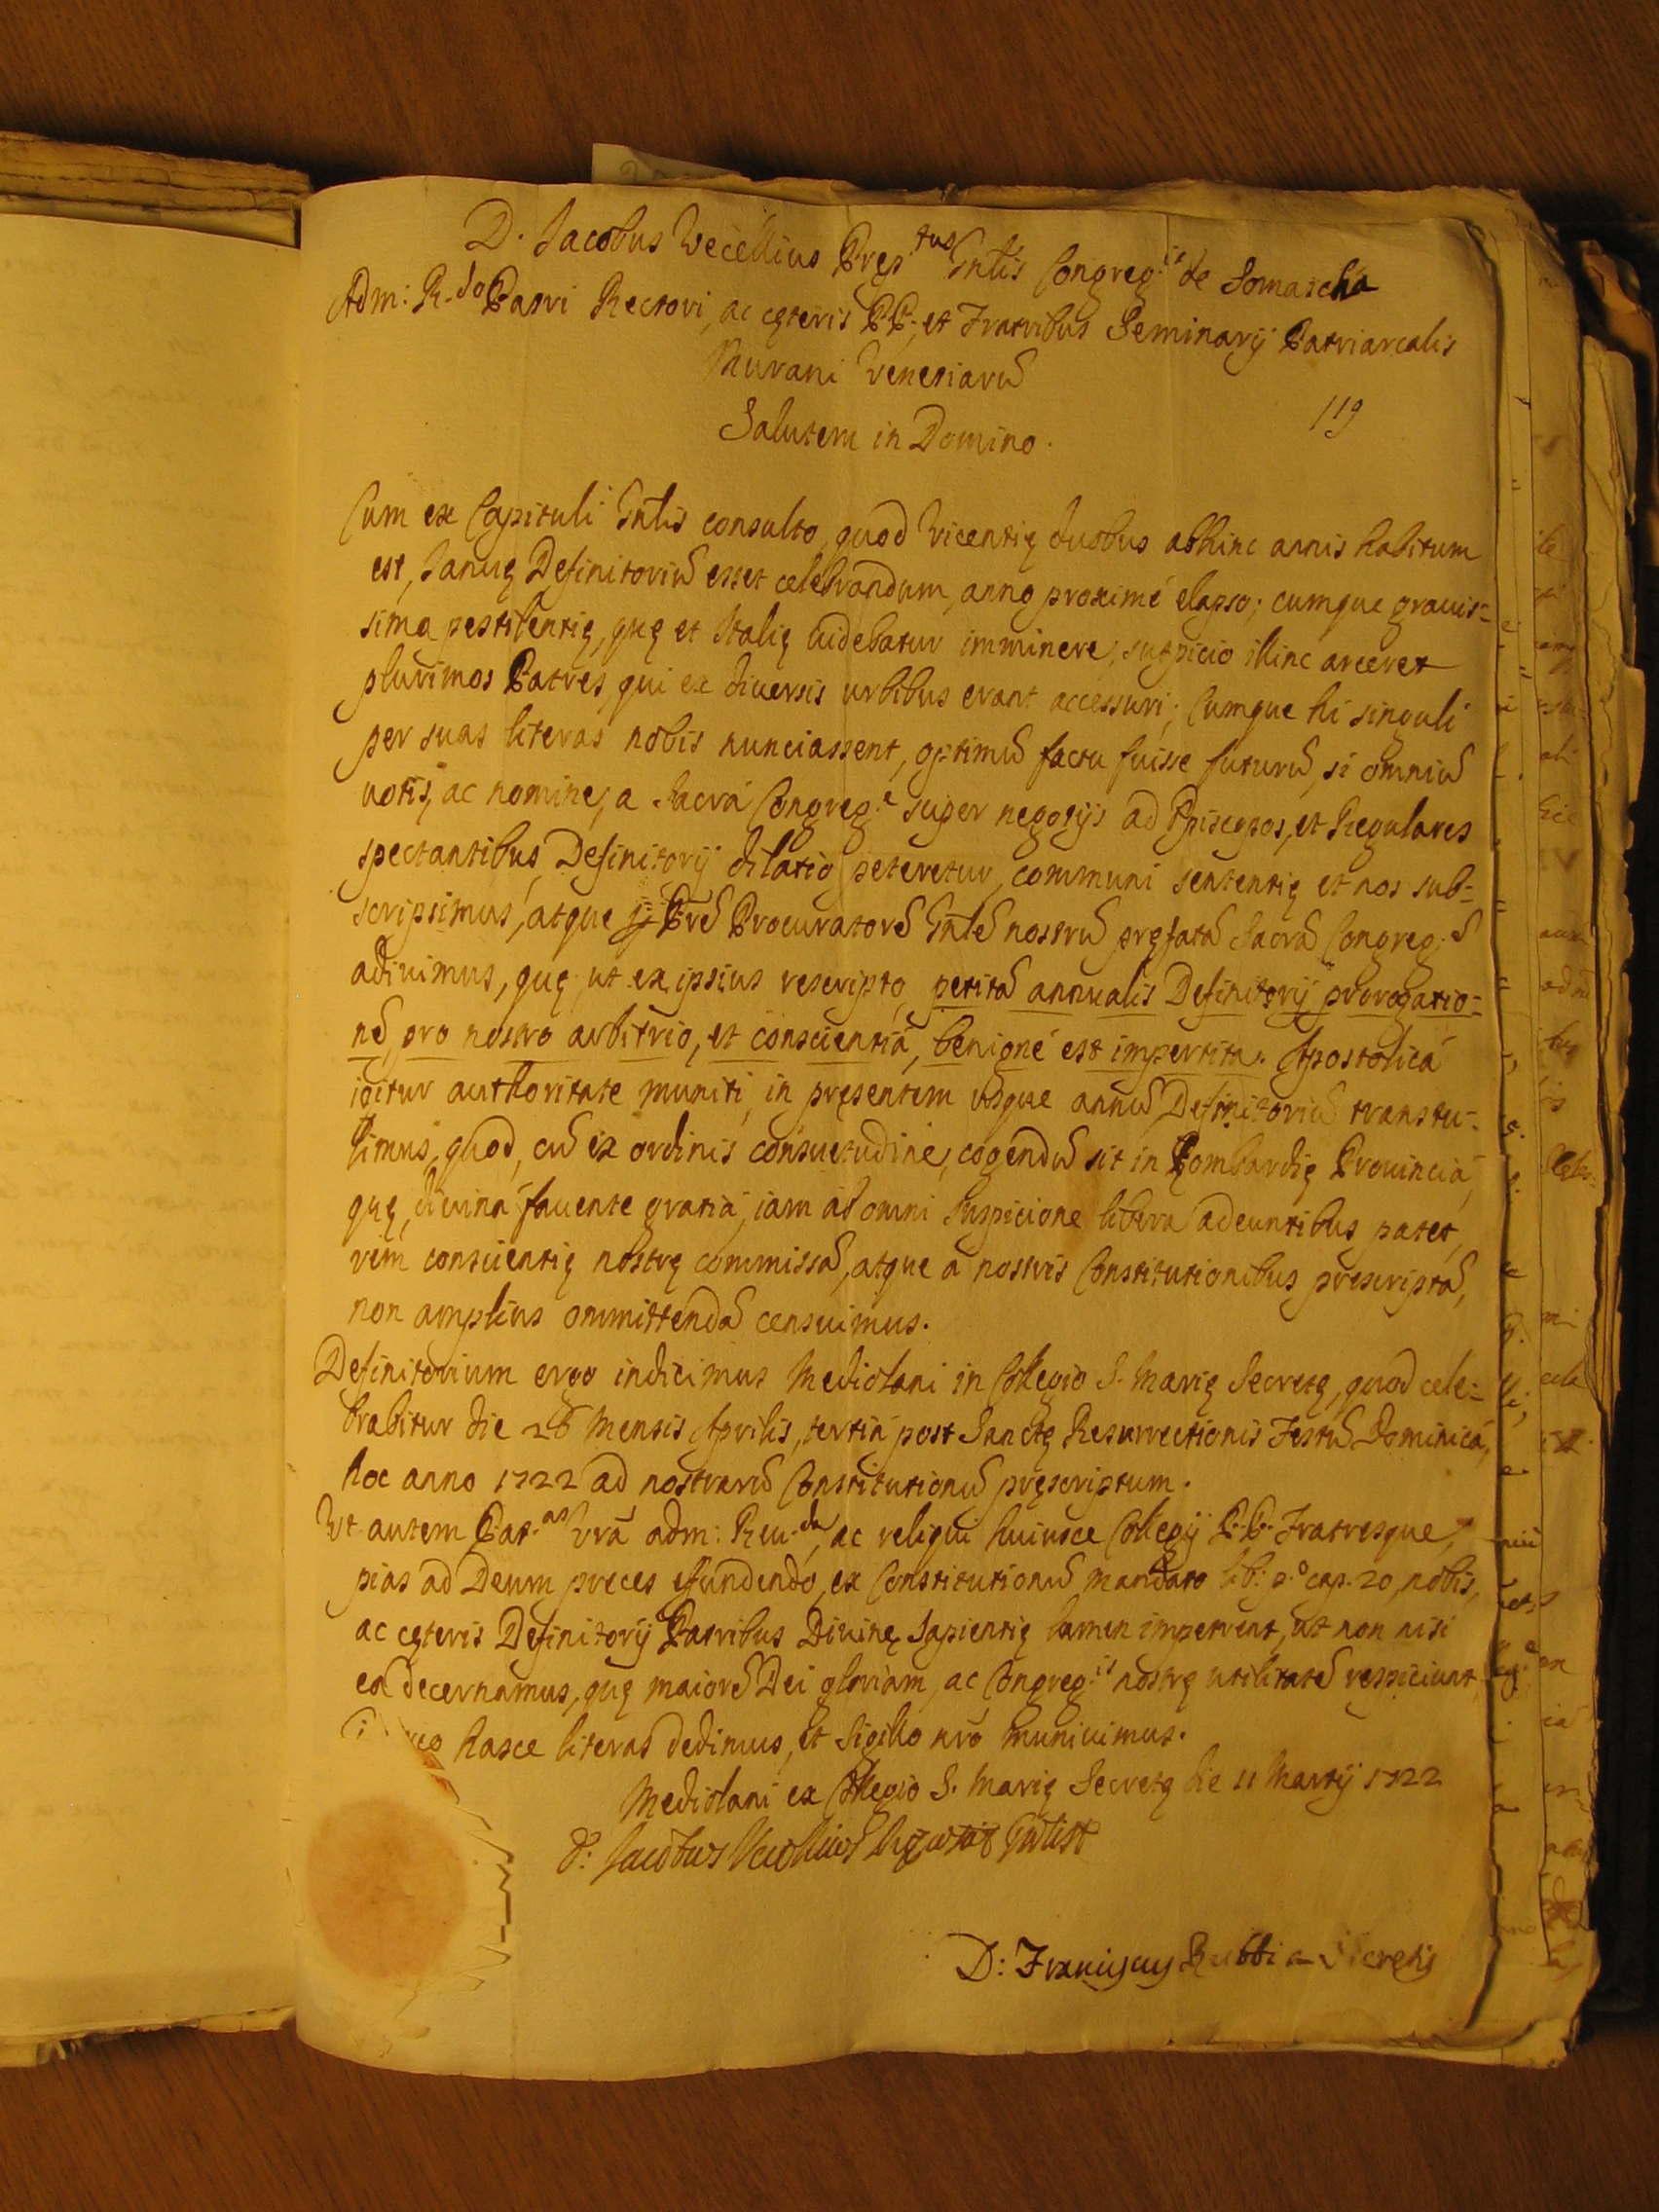 D. Iacobus Vecellius Pręp.tus Gnłis Congreg.is de Somascha
Adm: R.do Patri Rectori, ac cęteris PP. et Fratribus Seminarij Patriarcalis
Murani Venetiarũ
119
Salutem in Domino.
Cum ex Capituli Gnłis consulto, quod Vicentię duobus abhinc annis habitum
est, Ianuę Definitoriũ esset celebrandum, anno proximè elapso; cumque grauis=
sima pestilentię, quę et Italię uidebatur imminere, suspicio illinc arceret
plurimos Patres, qui ex diuersis urbibus erant accessuri; Cumque hi singuli
per suas literas nobis nunciassent, optimũ factu fuisse futurũ, si omniũ
uotis, ac nomine, a Sacrá Congreg.e super negotijs ad Episcopos, et Regulares
spectantibus Definitorij dilatio peteretur, communi sententię et nos sub=
scripsimus, atque Prẽ Procuratorẽ Gnłẽ nostrũ pręfatã Sacrã Congreg.ẽ
adiuimus, quę, ut ex ipsius rescripto, petitã annualis Definitorij prorogatio=
nẽ, pro nostro arbitrio, et conscientiá, benigné est impertita. Apostolicá
igitur authoritate muniti, in pręsentem usque annũ Definitoriũ transtu=
limus, quod, cũ ex ordinis consuetudine, cogendũ sit in Lombardię Prouinciá,
quę, diuiná fauente gratiá, iam ab omni suspicione libera adeuntibus patet,
rem conscientię nostrę commissã, atque a nostris Constitutionibus prescriptã,
non amplius ommittendã censuimus.
Definitorium ergo indicimus Mediolani in Collegio S. Marię Secretę, quod cele=
brabitur die 26 Mensis Aprilis, tertiá post Sanctę Resurrectionis Festũ Dominicá,
hoc anno 1722 ad nostrarũ Constitutionũ pręscriptum.
Ut autem Pat.as Vrã adm: Reu.da, ac reliqui huiusce Collegij P.P. Fratresque,
pias ad Deum preces efundendo, ex Constitutionũ mandato lib: 2.o cap. 20, nobis,
ac cęteris Definitorij Patribus Diuinę Sapientię lumen impetrent, ut non nisi
ea decernamus, quę maiorẽ Dei gloriam, ac Congreg.is nostrę utilitatẽ respiciunt,
hasce literas dedimus, et Sigillo nrõ muniuimus.
Mediolani ex Collegio S. Marię Secretę die 11 Martij 1722
D: Iacobus Vecellius Gnłis
D: Franciscus Rubbi a Secretis